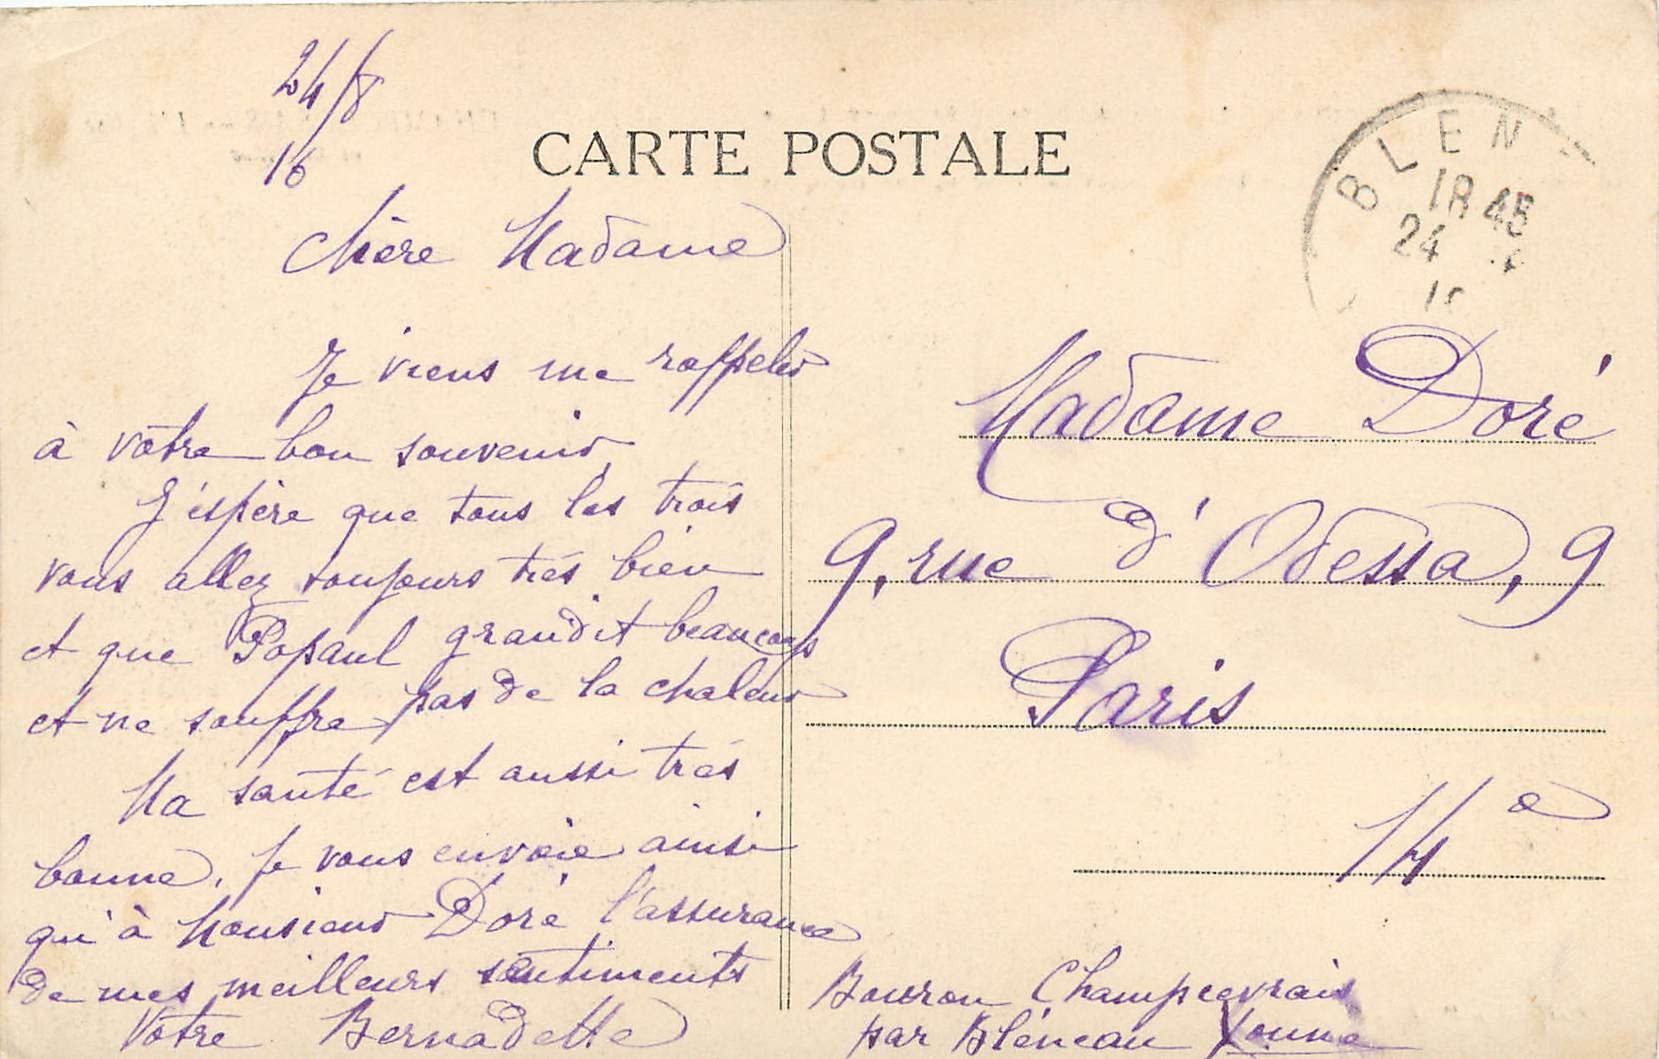 24/8
16
CARTE POSTALE
BLEN
18 45
24
Chère Madame
Je viens me rappeler
à votre bon souvenir
J'espère que tous les trois
vous allez toujours très bien
et que Popaul grandit beaucoup
et ne souffre pas de la chaleur
Ma santé est aussi très
bonne. Je vous envoie ainsi
qu'à Monsieur Doré l'assurance
de mes meilleurs sentiments
Votre Bernadette
Madame Doré
9, rue d'Odessa, 9
Paris
14e
Bouron Champcevrais
par Bléneau Yonne